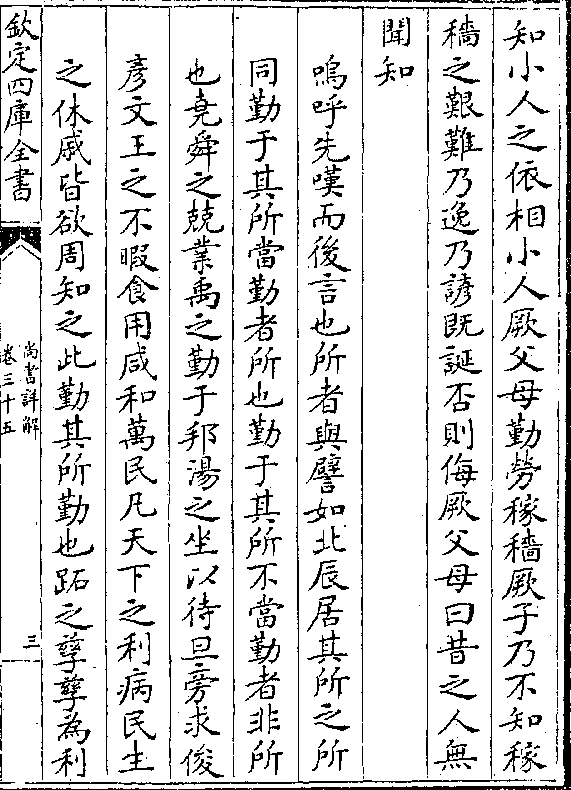 知小人之依相小人厥父母勤勞稼穡厥子乃不知稼
穡之艱難乃逸乃諺既誕否則侮厥父母曰昔之人無
聞知
嗚呼先嘆而後言也所者與譬如北辰居其所之所
同勤于其所當勤者所也勤于其所不當勤者非所
也堯舜之兢業禹之勤于邦湯之坐以待旦旁求俊
彥文王之不暇食用咸和萬民凡天下之利病民生
之休戚皆欲周知之此勤其所勤也跖之孳孳為利
欽定四庫全書
尚書詳解
卷三十五
三